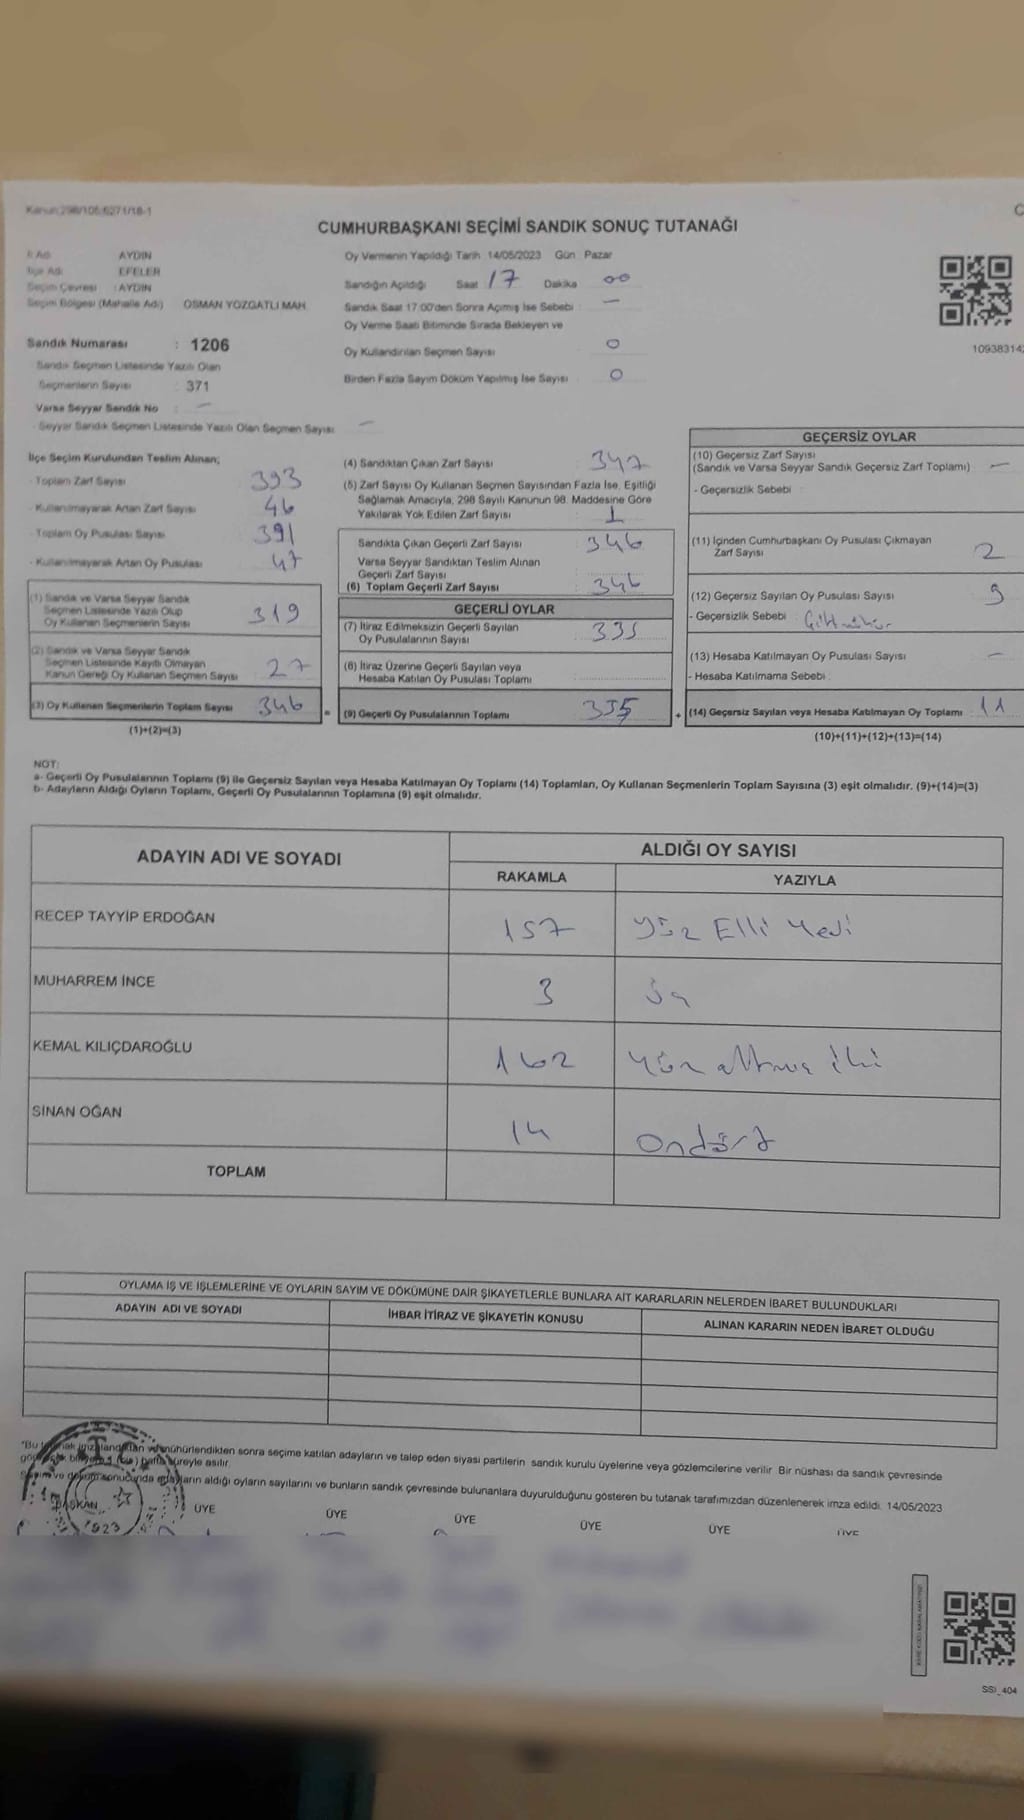 Kanun:298/105;6271/18-1
CUMHURBAŞKANI SEÇİMİ SANDIK SONUÇ TUTANAĞI
İl Adı : AYDIN
İlçe Adı : EFELER
Seçim Çevresi : AYDIN
Seçim Bölgesi (Mahalle Adı) OSMAN YOZGATLI MAH.
Sandık Numarası : 1206
Sandık Seçmen Listesinde Yazılı Olan
Seçmenlerin Sayısı : 371
Varsa Seyyar Sandık No : —
- Seyyar Sandık Seçmen Listesinde Yazılı Olan Seçmen Sayısı: —
Oy Vermenin Yapıldığı Tarih :14/05/2023 Gün : Pazar
Sandığın Açıldığı Saat 17 Dakika 00
Sandık Saat 17:00'den Sonra Açımış İse Sebebi : —
Oy Verme Saati Bitiminde Sırada Bekleyen ve
Oy Kullandırılan Seçmen Sayısı 0
Birden Fazla Sayım Döküm Yapılmış İse Sayısı : 0
10938314
İlçe Seçim Kurulundan Teslim Alınan;
- Toplam Zarf Sayısı 393
- Kullanılmayarak Artan Zarf Sayısı 46
- Toplam Oy Pusulası Sayısı 391
- Kullanılmayarak Artan Oy Pusulası 47
(1) Sandık ve Varsa Seyyar Sandık
Seçmen Listesinde Yazılı Olup
Oy Kullanan Seçmenlerin Sayısı 319
(2) Sandık ve Varsa Seyyar Sandık
Seçmen Listesinde Kayıtlı Olmayan
Kanun Gereği Oy Kullanan Seçmen Sayısı 27
(3) Oy Kullanan Seçmenlerin Toplam Sayısı 346 =
(1)+(2)=(3)
(4) Sandıktan Çıkan Zarf Sayısı 347
(5) Zarf Sayısı Oy Kullanan Seçmen Sayısından Fazla İse, Eşitliği
Sağlamak Amacıyla, 298 Sayılı Kanunun 98. Maddesine Göre
Yakılarak Yok Edilen Zarf Sayısı 1
Sandıkta Çıkan Geçerli Zarf Sayısı 346
Varsa Seyyar Sandıktan Teslim Alınan
Geçerli Zarf Sayısı
(6) Toplam Geçerli Zarf Sayısı 346
GEÇERLİ OYLAR
(7) İtiraz Edilmeksizin Geçerli Sayılan
Oy Pusulalarının Sayısı 335
(8) İtiraz Üzerine Geçerli Sayılan veya
Hesaba Katılan Oy Pusulası Toplamı
(9) Geçerli Oy Pusulalarının Toplamı 335 +
GEÇERSİZ OYLAR
(10) Geçersiz Zarf Sayısı
(Sandık ve Varsa Seyyar Sandık Geçersiz Zarf Toplamı) —
- Geçersizlik Sebebi :
(11) İçinden Cumhurbaşkanı Oy Pusulası Çıkmayan
Zarf Sayısı 2
(12) Geçersiz Sayılan Oy Pusulası Sayısı 9
- Geçersizlik Sebebi :
(13) Hesaba Katılmayan Oy Pusulası Sayısı —
- Hesaba Katılmama Sebebi :
(14) Geçersiz Sayılan veya Hesaba Katılmayan Oy Toplamı 11
(10)+(11)+(12)+(13)=(14)
NOT:
a- Geçerli Oy Pusulalarının Toplamı (9) ile Geçersiz Sayılan veya Hesaba Katılmayan Oy Toplamı (14) Toplamları, Oy Kullanan Seçmenlerin Toplam Sayısına (3) eşit olmalıdır. (9)+(14)=(3)
b- Adayların Aldığı Oyların Toplamı, Geçerli Oy Pusulalarının Toplamına (9) eşit olmalıdır.
ADAYIN ADI VE SOYADI ALDIĞI OY SAYISI
RAKAMLA YAZIYLA
RECEP TAYYİP ERDOĞAN 157 Yüz Elli Yedi
MUHARREM İNCE 3 üç
KEMAL KILIÇDAROĞLU 162 Yüz altmış iki
SİNAN OĞAN 14 Ondört
TOPLAM
OYLAMA İŞ VE İŞLEMLERİNE VE OYLARIN SAYIM VE DÖKÜMÜNE DAİR ŞİKAYETLERLE BUNLARA AİT KARARLARIN NELERDEN İBARET BULUNDUKLARI
ADAYIN ADI VE SOYADI İHBAR İTİRAZ VE ŞİKAYETİN KONUSU ALINAN KARARIN NEDEN İBARET OLDUĞU
"Bu tutanak imzalandıktan ve mühürlendikten sonra seçime katılan adayların ve talep eden siyasi partilerin sandık kurulu üyelerine veya gözlemcilerine verilir. Bir nüshası da sandık çevresinde
bir yere 1 (bir) hafta süreyle asılır.
Sayım ve döküm sonucunda adayların aldığı oyların sayılarını ve bunların sandık çevresinde bulunanlara duyurulduğunu gösteren bu tutanak tarafımızdan düzenlenerek imza edildi. 14/05/2023
BAŞKAN ÜYE ÜYE ÜYE ÜYE ÜYE ÜYE
T.C.
1923
SSI_404